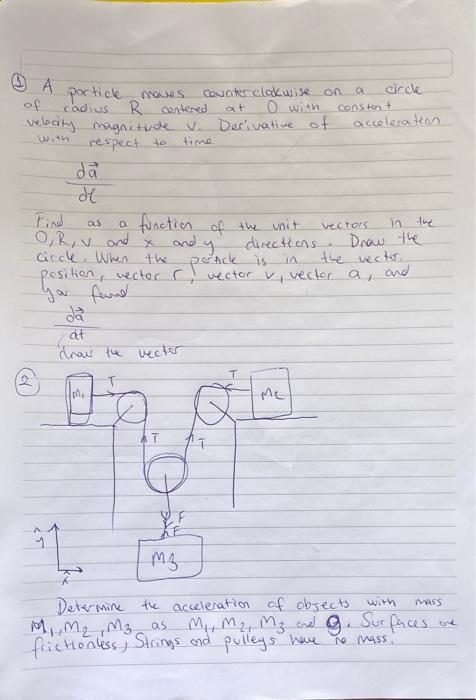 ① A particle moves counterclokwise on a circle
of radius R centered at O with constent
velocity magnitude v. Derivative of acceleration
with respect to time
da⃗
dt
Find as a function of the unit vectors in the
O, R, v and x and y directions. Draw the
circle. When the particle is in the vector
position, vector r, vector v, vector a, and
you found
da⃗
dt
draw the vector
②
M1
T
T
M2
T
T
F
F
M3
ŷ
x̂
Determine the acceleration of objects with mass
M1, M2, M3 as M1, M2, M3 and g. Surfaces are
frictionless, Strings and pulleys have no mass.